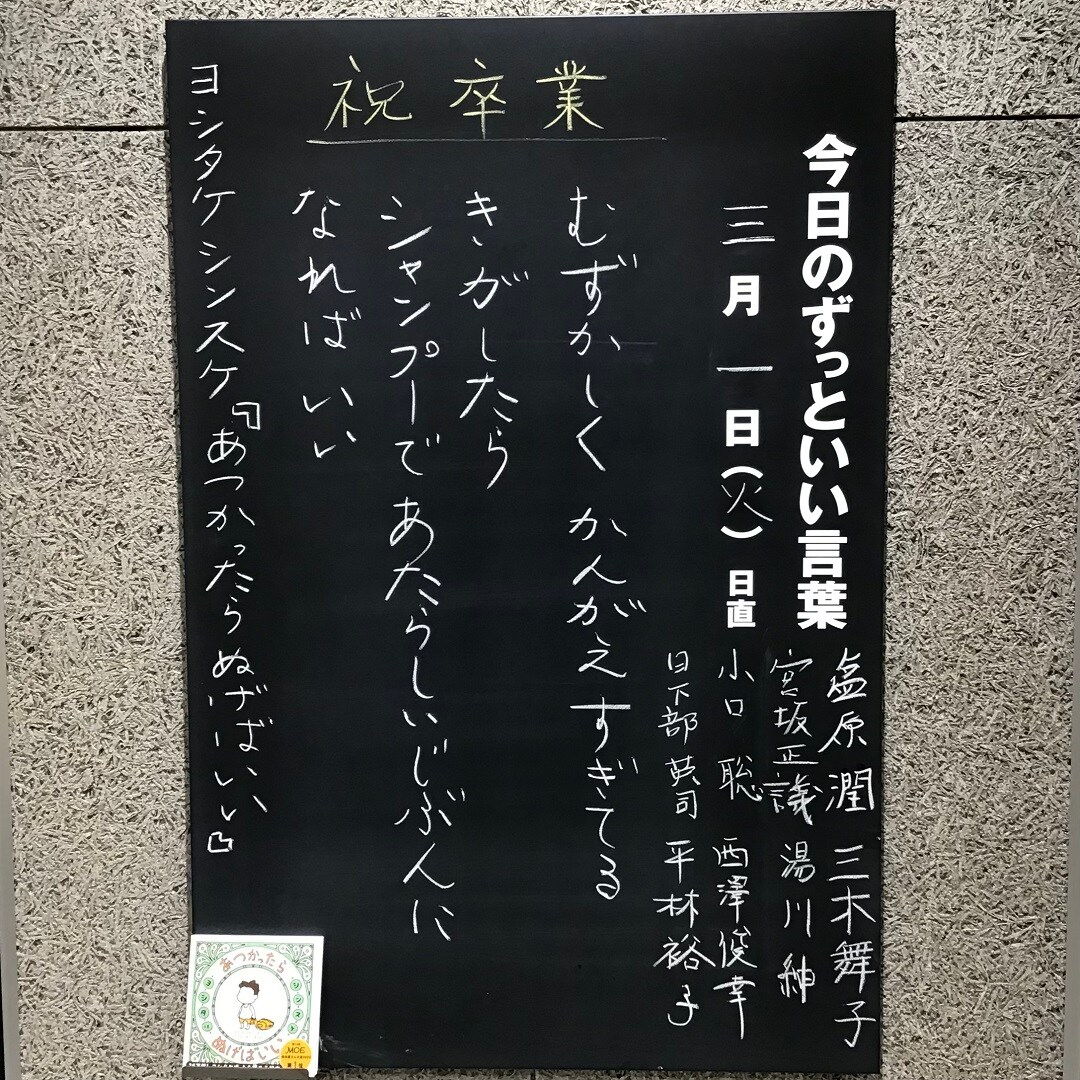 今日のずっといい言葉
三月一日（火）日直
塩原潤 三木舞子
宮坂正議 湯川紳
小口聡 西澤俊幸
日下部英司 平林裕子
祝卒業
むずかしく かんがえすぎてる
きがしたら
シャンプーであたらしいじぶんに
なればいい
ヨシタケシンスケ『あつかったらぬげばいい』
あつかったら
ヨシタケ
シンスケ
ぬげばいい
MOE